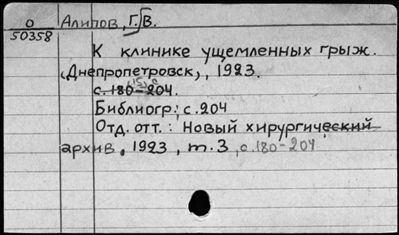 О Алипов, Г. В.
50358
К клинике ущемленных грыж.
(Днепропетровск,, 1923.
с. 180-204.
Библиогр.; с. 204
Отд. отт.: Новый хирургический
архив, 1923, т. 3, с. 180-204